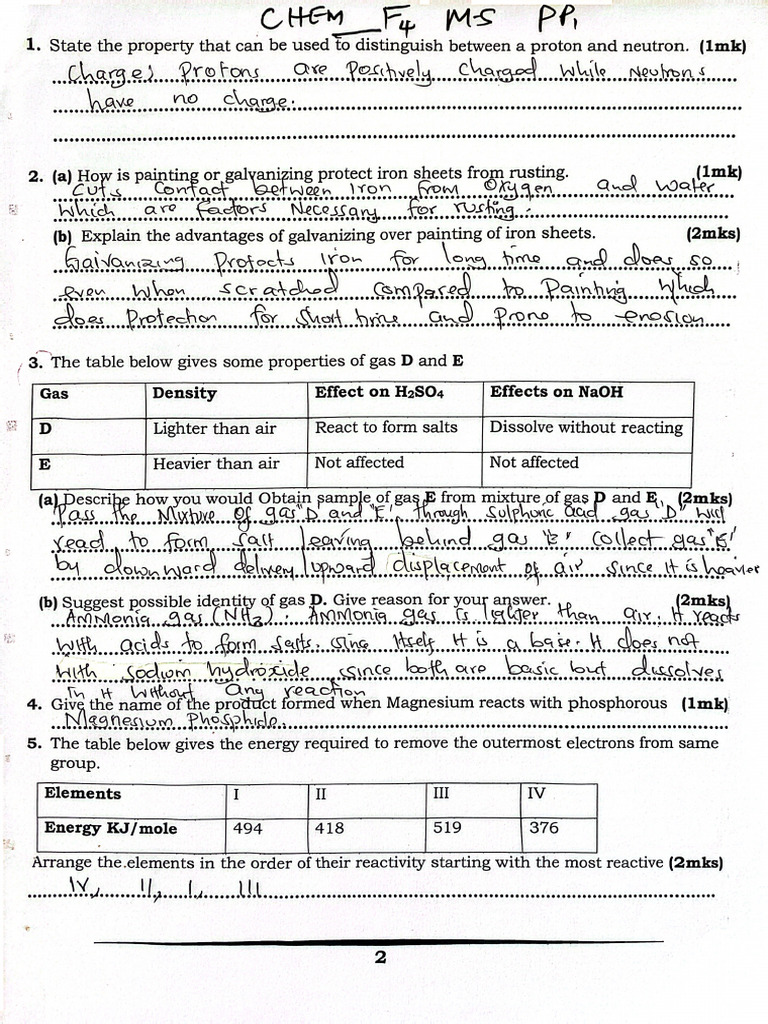 CHEM F4 MS PP1
1. State the property that can be used to distinguish between a proton and neutron. (1mk)
Charges Protons are Positively Charged While Neutrons
have no charge.
2. (a) How is painting or galvanizing protect iron sheets from rusting. (1mk)
Cuts Contact between Iron from Oxygen and Water
Which are Factors Necessary for rusting.
(b) Explain the advantages of galvanizing over painting of iron sheets. (2mks)
Galvanizing Protects Iron for long time and does so
even When scratched compared to Painting Which
does Protection for Short time and Prone to erosion
3. The table below gives some properties of gas D and E
Gas Density Effect on H2SO4 Effects on NaOH
D Lighter than air React to form salts Dissolve without reacting
E Heavier than air Not affected Not affected
(a) Describe how you would Obtain sample of gas E from mixture of gas D and E. (2mks)
Pass the Mixture of gas "D" and "E" through Sulphuric acid gas "D" will
react to form Salt leaving behind gas "E" collect gas "E"
by downward delivery/upward displacement of air since it is heavier
(b) Suggest possible identity of gas D. Give reason for your answer. (2mks)
Ammonia gas (NH3). Ammonia gas is lighter than air. It reacts
with acids to form salts. Sinc itself it is a base. It does not
with sodium hydroxide since both are basic but dissolves
in it without any reaction
4. Give the name of the product formed when Magnesium reacts with phosphorous (1mk)
Magnesium Phosphide.
5. The table below gives the energy required to remove the outermost electrons from same
group.
Elements I II III IV
Energy KJ/mole 494 418 519 376
Arrange the elements in the order of their reactivity starting with the most reactive (2mks)
IV, II, I, III
2